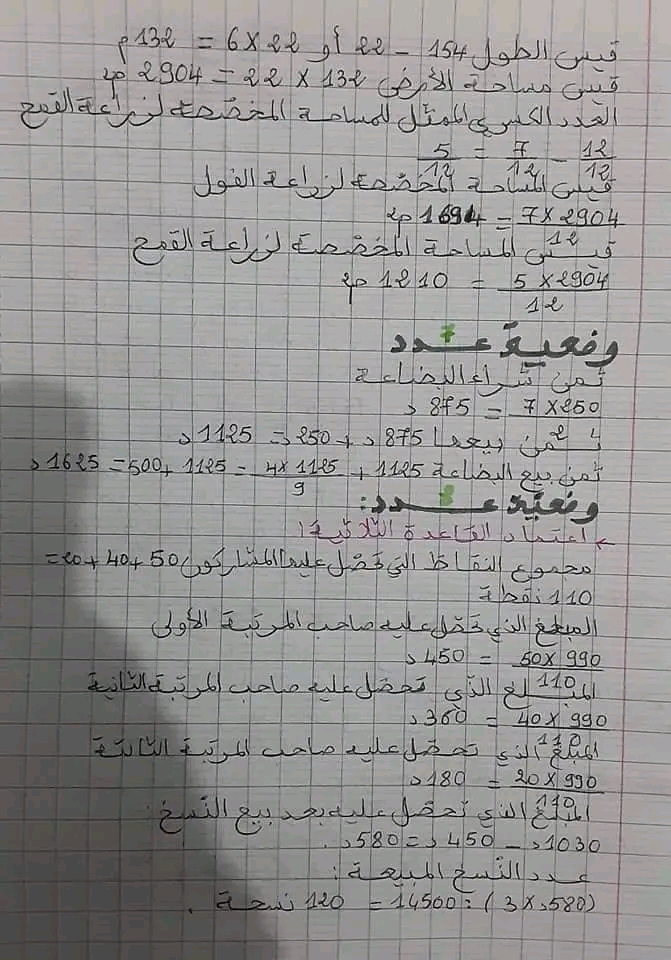 قيس الطول 154 - 22 أو 22 × 6 = 132 م
قيس مساحة الأرض 132 × 22 = 2904 م²
العدد الكسري الممثل للمساحة المخصصة لزراعة القمح
12/12 - 7/12 = 5/12
قيس المساحة المخصصة لزراعة الفول
7×2904/12 = 1694 م²
قيس المساحة المخصصة لزراعة القمح
5×2904/12 = 1210 م²
وضعية عدد 7
ثمن شراء البضاعة
7×250/2 = 875 د
ثمن بيعها 875 د + 250 د = 1125 د
ثمن بيع البضاعة 1125 + 4×1125/9 = 1125 + 500 = 1625 د
وضعية عدد 8:
اعتماد القاعدة الثلاثية:
مجموع النقاط التي تحصّل عليها المشاركون 50 + 40 + 20 =
110 نقطة
المبلغ الذي تحصّل عليه صاحب المرتبة الأولى
50×990/110 = 450 د
المبلغ الذي تحصّل عليه صاحب المرتبة الثانية
40×990/110 = 360 د
المبلغ الذي تحصّل عليه صاحب المرتبة الثالثة
20×990/110 = 180 د
المبلغ الذي تحصّل عليه بعد بيع النّسخ:
1030 د - 450 د = 580 د.
عدد النّسخ المبيعة:
(580 د × 3) : 14500 = 120 نسخة.